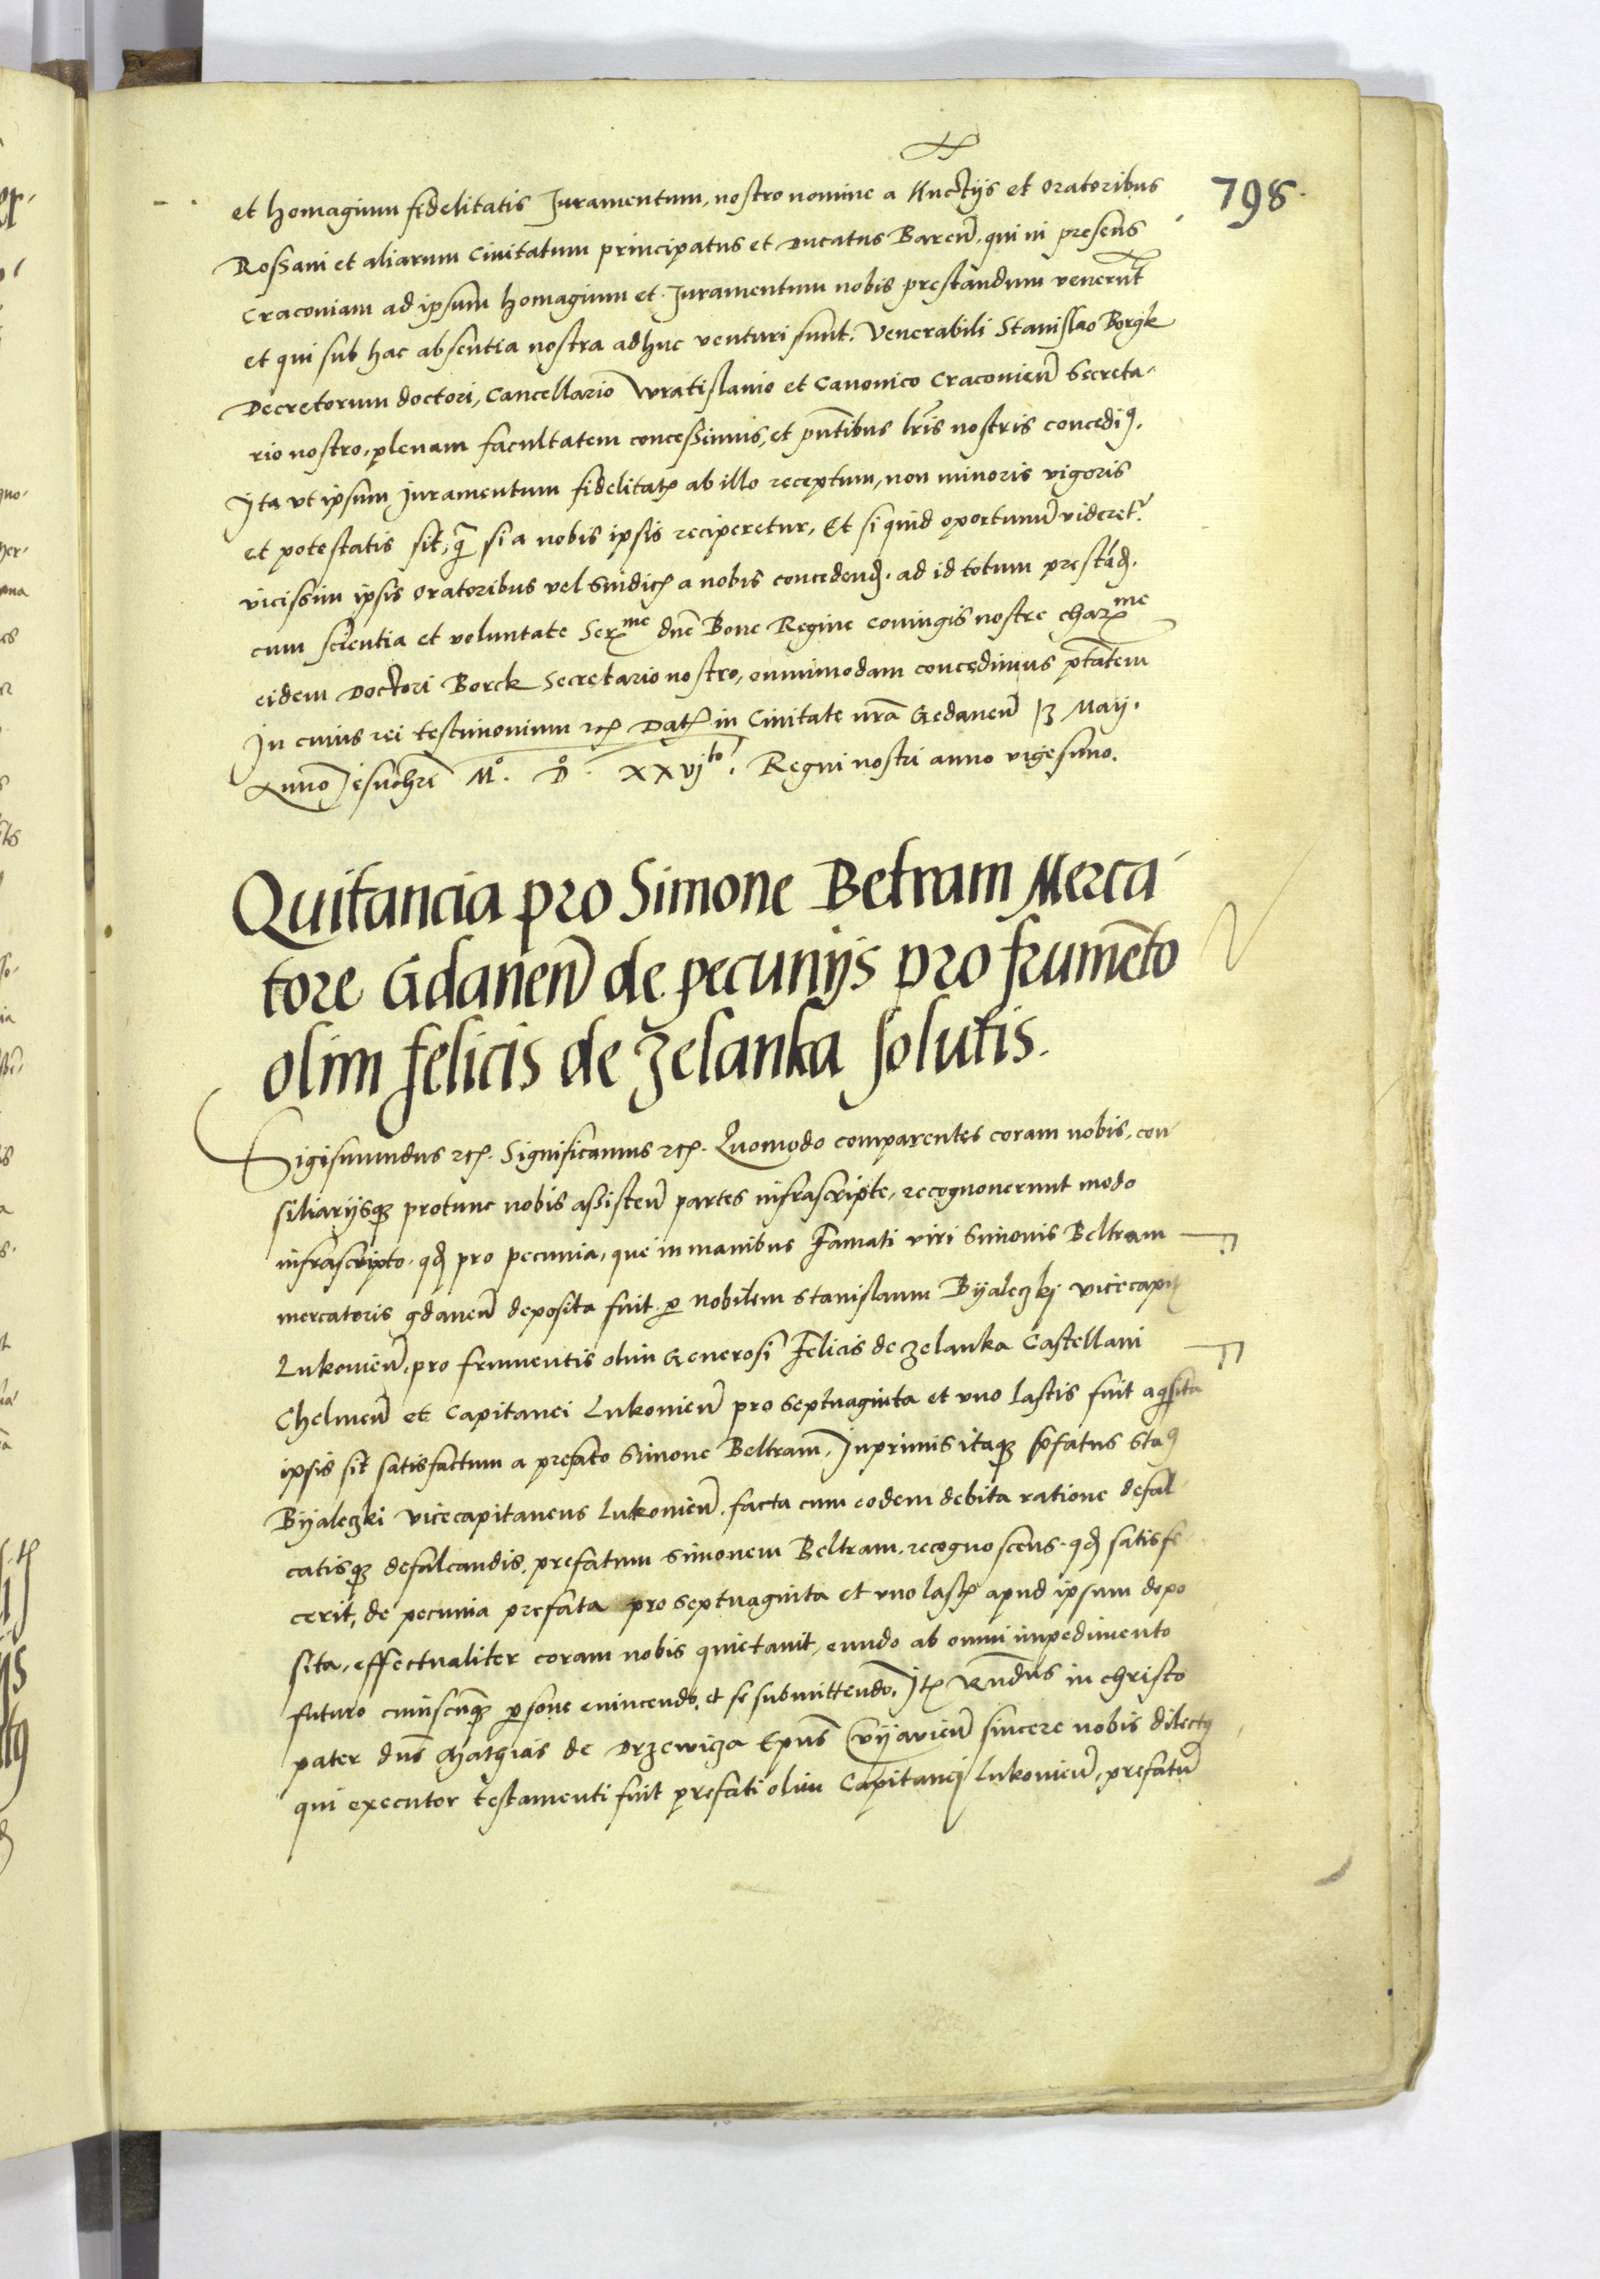 798.
et homagium fidelitatis Juramentum, nostro nomine a Nuctijs et oratoribus
Rossani et aliarum Civitatum principatus et Ducatus Bareñ. qui in presens
Craconiam ad ipsum homagium et Juramentum nobis prestandum venerũt
et qui sub hac absentia nostra adhuc venturi sunt. Venerabili Stanislao Borgk
Decretorum doctori, Cancellario Wratislauio et Canonico Craconieñ Secreta-
rio nostro, plenam facultatem concessimus, et pñtibus lr̃is nostris concediꝰ.
Ita vt ipsum Juramentum fidelitatꝭ ab illo receptum, non minoris vigoris
et potestatis sit, q̃ si a nobis ipsis reciperetur, Et si quid oportunũ videret᷑
vicissim ipsis oratoribus vel Sindicꝭ a nobis concedenđ. ad id totum prestãđ.
cum scientia et voluntate Serᵐᵉ dñe Bone Regine coniugis nostre charᵐᵉ
eidem Doctori Borck Secretario nostro, omnimodam concedimus ptãtem
In cuius rei testimonium ꝛcꝭ Datꝭ in Ciuitate nr̃a Gedaneñ 13 Maij.
Anno Jesuchri̅ Mͦ. Dͦ. XXvjᵗᵒ. Regni nostri anno vigesimo.
Quitancia pro Simone Betram Merca-
tore Gdaneñ de pecunijs pro frumẽto
olim felicis de Zelanka solutis.
Sigismundus ꝛcꝭ. Significamus ꝛcꝭ. Quomodo comparentes coram nobis, con-
siliarijsqꝫ protunc nobis assisteñ partes infrascripte, recognouerunt modo
infrascripto. qđ pro pecunia, que in manibus Famati viri Simonis Beltram
mercatoris gdaneñ deposita fuit ꝑ Nobilem Stanislaum Bijaleczkj vicecapit
Lukonieñ, pro frumentis olim Generosi Felicis de Zelanka Castellani
Chelmeñ et Capitanei Lukonieñ pro septuaginta et vno lastis fuit aqsita
ipsis sit satisfactum a prefato Simone Beltram, Inprimis itaqꝫ pfatus Staꝰ
Bijaleczki vicecapitaneus Lukonieñ. facta cum eodem debita ratione defal-
catisqꝫ defalcandis. prefatum Simonem Beltram. recognoscens. qđ satisfe-
cerit, de pecunia prefata pro septuaginta et vno lastꝭ apud ipsum depo-
sita, effectualiter coram nobis quietauit, eundo ab omni impedimento
futuro cuiuscũqꝫ ꝑsone euincendo, et se submittendo. Itꝭ Rñdus in christo
pater dñs Mathias de Drzewicza Epũs Cuijavieñ sincere nobis dilectꝰ
qui executor testamenti fuit prefati olim Capitanej Lukonieñ, prefatũ